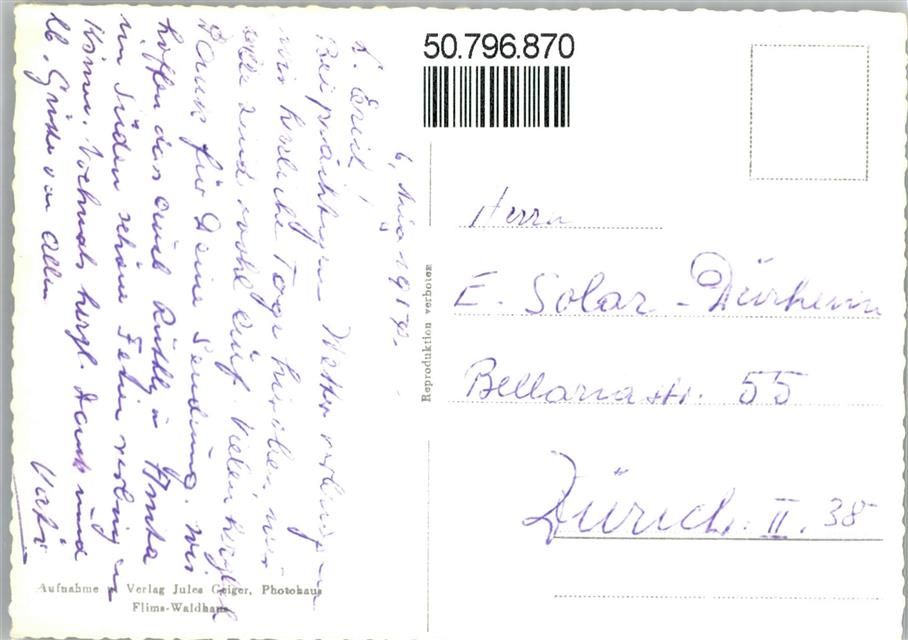 50.796.870
6. Aug 19
L. Erich!
Bei prächtigem Wetter verbringen
wir herrliche Tage hier oben, wir
alle sind wohl auf. Vielen herzlich
Dank für Deine Sendung. Wir
hoffen das auch Ruthly u Anita
im Süden schöne Ferien verbringen
können. Nochmals herzl. Dank und
lb. Grüsse von Allen
Vati
Aufnahme u. Verlag Jules Geiger, Photohaus
Flims-Waldhaus
Reproduktion verboten
Herrn
E. Solar-Dürheim
Bellariastr. 55
Zürich. II. 38